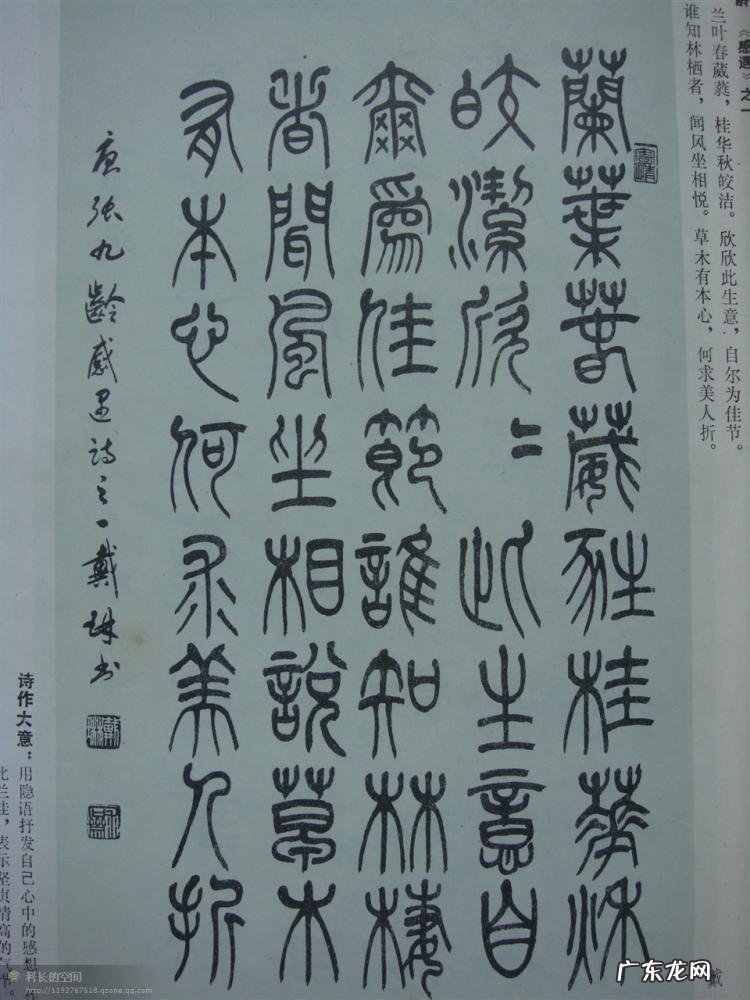 《感遇》之一
兰叶春葳蕤，桂华秋皎洁。欣欣此生意，自尔为佳节。
谁知林栖者，闻风坐相悦。草木有本心，何求美人折。
蘭葉春葳蕤桂華秋
皎潔欣〻此生意自
爾爲佳節誰知林棲
者聞風坐相說草木
有本心何求美人折
唐张九齡感遇诗之一戴书
诗作大意：用隐语抒发自己心中的感想
兰桂，表示坚贞清高的节。
戴
科长的空间
http://1193767618.qzone.qq.com
广东龙网